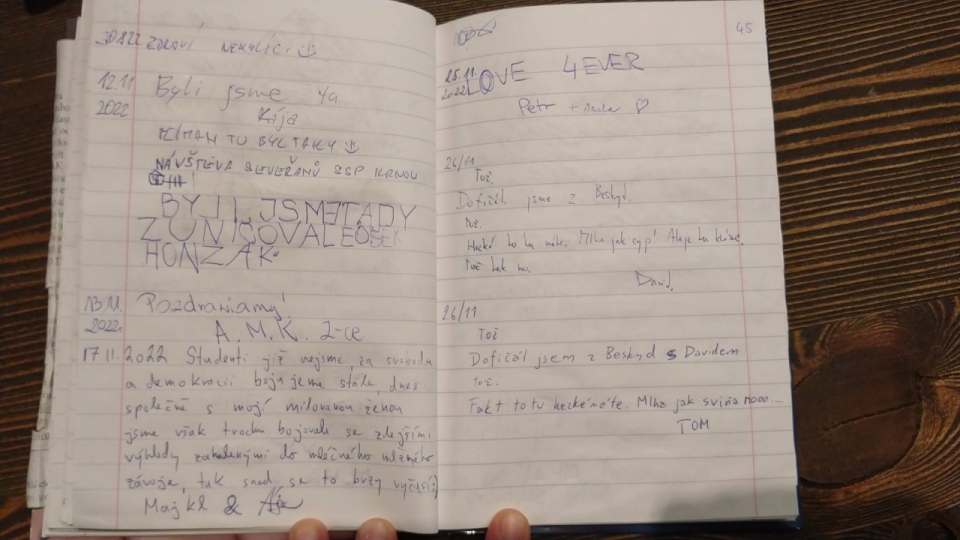 ZDRAVÍ
12.11
2022
Byli jsme ta
Kája
TU BYL TAKY
NÁVŠTĚVA SLEVEŘANŮ
BYJI JSME TADY
HONZÁK
13.11.
2022.
Pozdrawiamy!
A. M. K. J-ce
17.11.2022 Studenti již nejsme, za svobodu
a demokracii bojujeme stále, dnes
společně s mojí milovanou ženou
jsme však trochu bojovali se zdejšími
výhledy zahalenými do mléčného mlžného
závoje, tak snad se to brzy vyčasí :)
Majkl &
45
25.11.
2022
LOVE 4EVER
Petr +
26/11
Tož.
Dofičěl jsme z Beskyd.
Tož.
Hezké to tu máte. Mlha jak cyp!
Tož tak no.
David.
26/11
Tož
Dofičěl jsem z Beskyd s Davidem
Tož.
Fakt to tu hezké máte. Mlha jak sviňa nooo...
TOM